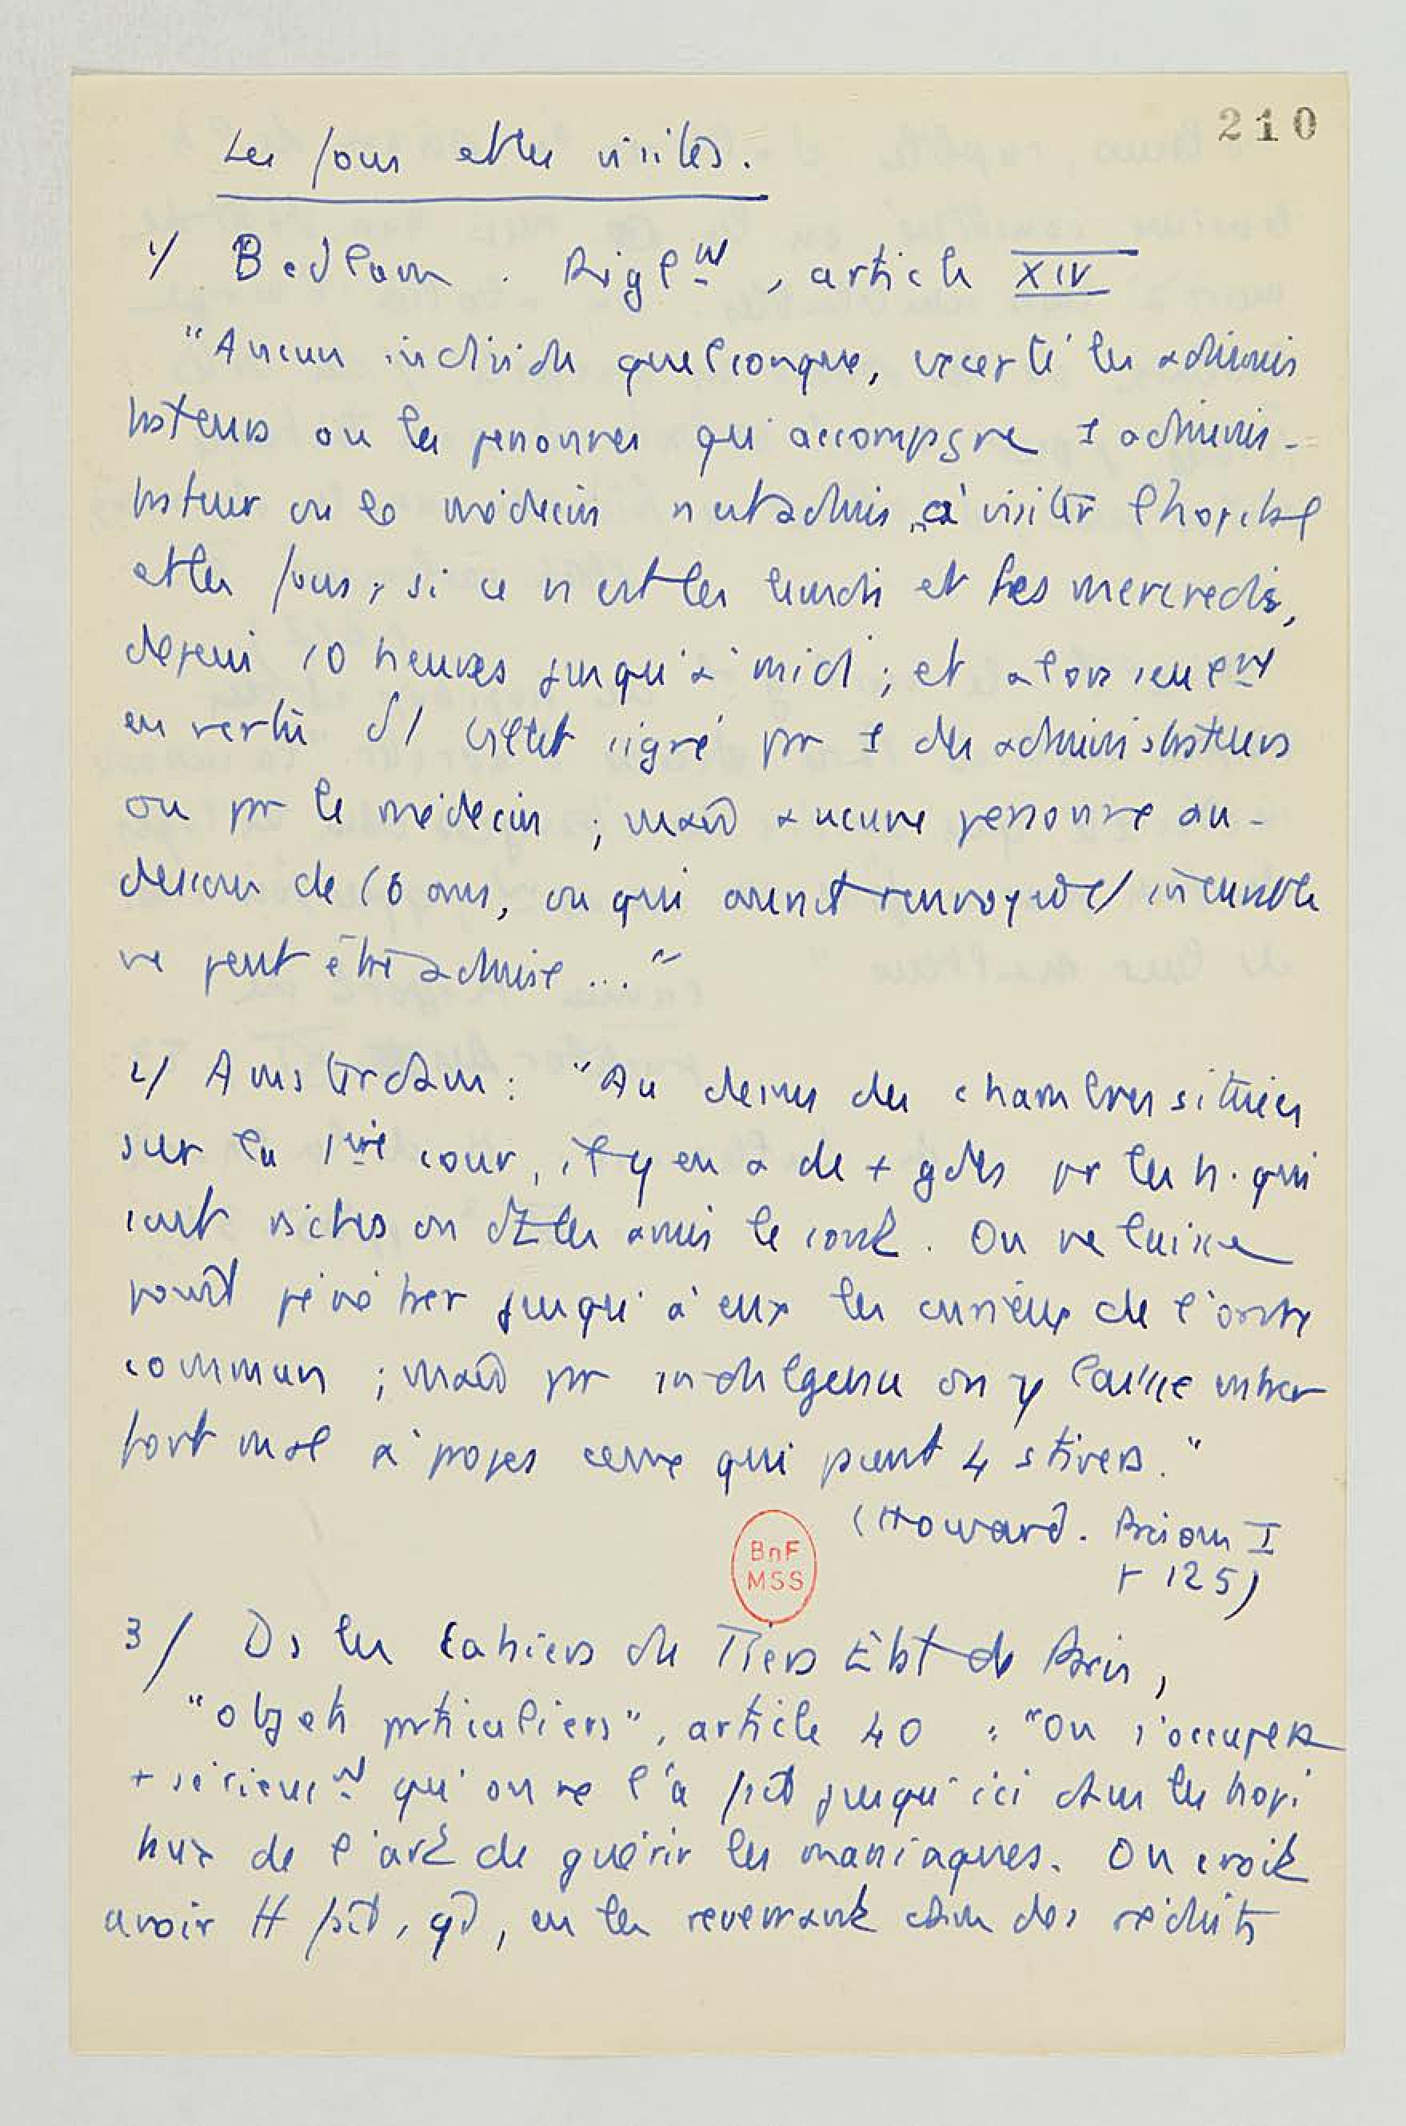 210
Les fous et les visites.
1/ Bedlam. Règl^mt, article XIV
"Aucun individu quelconque, excepté les adminis
trateurs ou les personnes qui accompagne 1 adminis-
trateur ou le médecin n'est admis à visiter l'hopital
et les fous, si ce n'est les lundi et les mercredis,
depuis 10 heures jusqu'à midi ; et alors seul^mt
en vertu d'1 billet signé par 1 des administrateurs
ou par le médecin ; mais aucune personne au-
dessous de 16 ans, ou qui aurait
ne peut être admise ..."
2/ Amsterdam : "Au dessus des chambres situées
sur la 1ère cour, il y en a de + gdes pr les h. qui
sont riches ou dt les amis le sont. On ne laisse
point pénétrer jusqu'à eux les curieux de l'ordre
commun ; mais par indulgence on y laisse entrer
fort mal à propos ceux qui paient 4 stivers."
(Howard. Prisons I
p 125)
BnF
MSS
3/ Ds les Cahiers du Tiers État de Paris,
"objets particuliers", article 40 : "On s'occupera
+ sérieus^mt qu'on ne l'a fait jusqu'ici dans les hopi
taux de l'art de guérir les maniaques. On croit
avoir tt fait, qd, en les resserrant dans des réduits